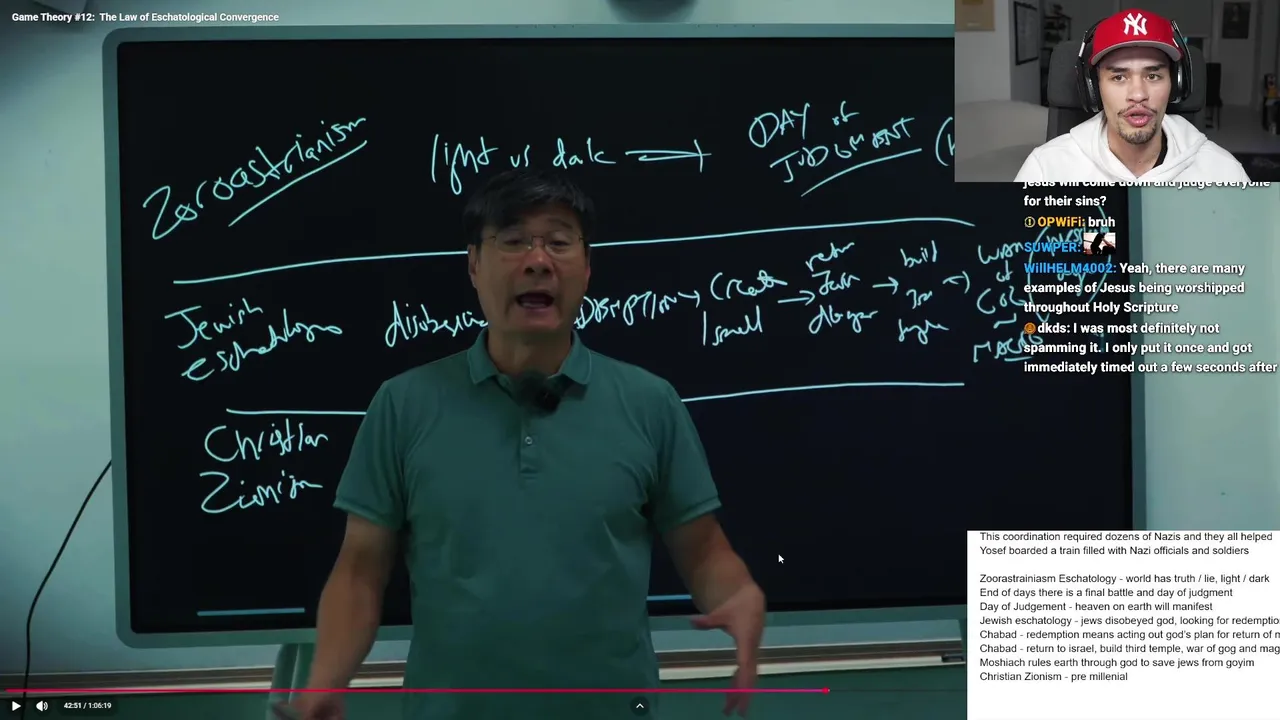 Game Theory #12: The Law of Eschatological Convergence
Zoroastrianism
light vs dark
DAY of
JUDGMENT
Jewish
eschatology
Create
Israel
return
build
Christian
Zionism
NY
jesus will come down and judge everyone
for their sins?
OPWiFi: bruh
SUWPER:
WillHELM4002: Yeah, there are many
examples of Jesus being worshipped
throughout Holy Scripture
dkds: I was most definitely not
spamming it. I only put it once and got
immediately timed out a few seconds after
This coordination required dozens of Nazis and they all helped
Yosef boarded a train filled with Nazi officials and soldiers
Zoorastrainiasm Eschatology - world has truth / lie, light / dark
End of days there is a final battle and day of judgment
Day of Judgement - heaven on earth will manifest
Jewish eschatology - jews disobeyed god, looking for redemptio
Chabad - redemption means acting out god's plan for return of m
Chabad - return to israel, build third temple, war of gog and mag
Moshiach rules earth through god to save jews from goyim
Christian Zionism - pre millenial
42:51 / 1:06:19